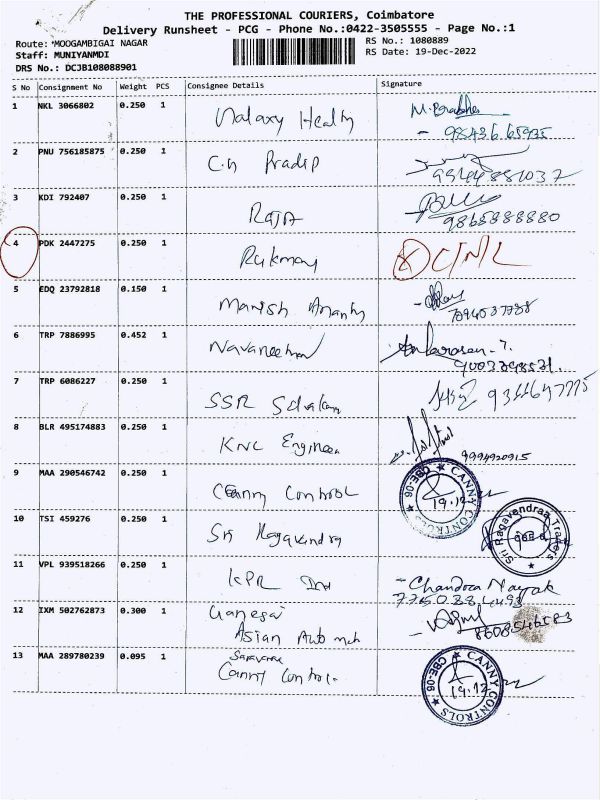 THE PROFESSIONAL COURIERS, Coimbatore
Delivery Runsheet - PCG - Phone No.:0422-3505555 - Page No.:1
Route: MOOGAMBIGAI NAGAR
RS No.: 1080889
Staff: MUNIYANMDI
RS Date: 19-Dec-2022
DRS No.: DCJB108088901
S No Consignment No Weight PCS Consignee Details Signature
1 NKL 3066802 0.250 1 Health
2 PNU 756185875 0.250 1 Pradip
3 KDI 792407 0.250 1 RAJA 9865888880
4 PDK 2447275 0.250 1 Rukmany
5 EDQ 23792818 0.150 1 Manish
6 TRP 7886995 0.452 1
7 TRP 6086227 0.250 1 SSR
8 BLR 495174883 0.250 1 KNC Engineer 9994920915
9 MAA 290546742 0.250 1 Canny Control
CANNY CONTROLS CBE-06 19.12
10 TSI 459276 0.250 1 Sri Ragavendra
Sri Ragavendraa Traders
11 VPL 939518266 0.250 1 KPR Chandra Nayak
12 IXM 502762873 0.300 1 Ganesar
Asian 8608546583
13 MAA 289780239 0.095 1
Canny Control
CANNY CONTROLS CBE-06 19.12